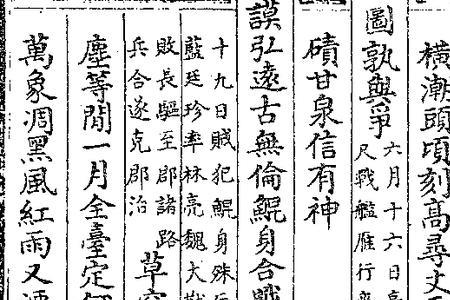 橫潮頭頃刻高尋丈
圖孰與爭
六月十六日
尺戰艦雁行
磧甘泉信有神
謨弘遠古無倫鯤身合戰
十九日賊犯鯤身殊
藍廷珍率林亮魏大
敗長驅至郡諸路
兵合遂克郡治
草
塵等閒一月全臺定
萬象凋黑風紅雨又